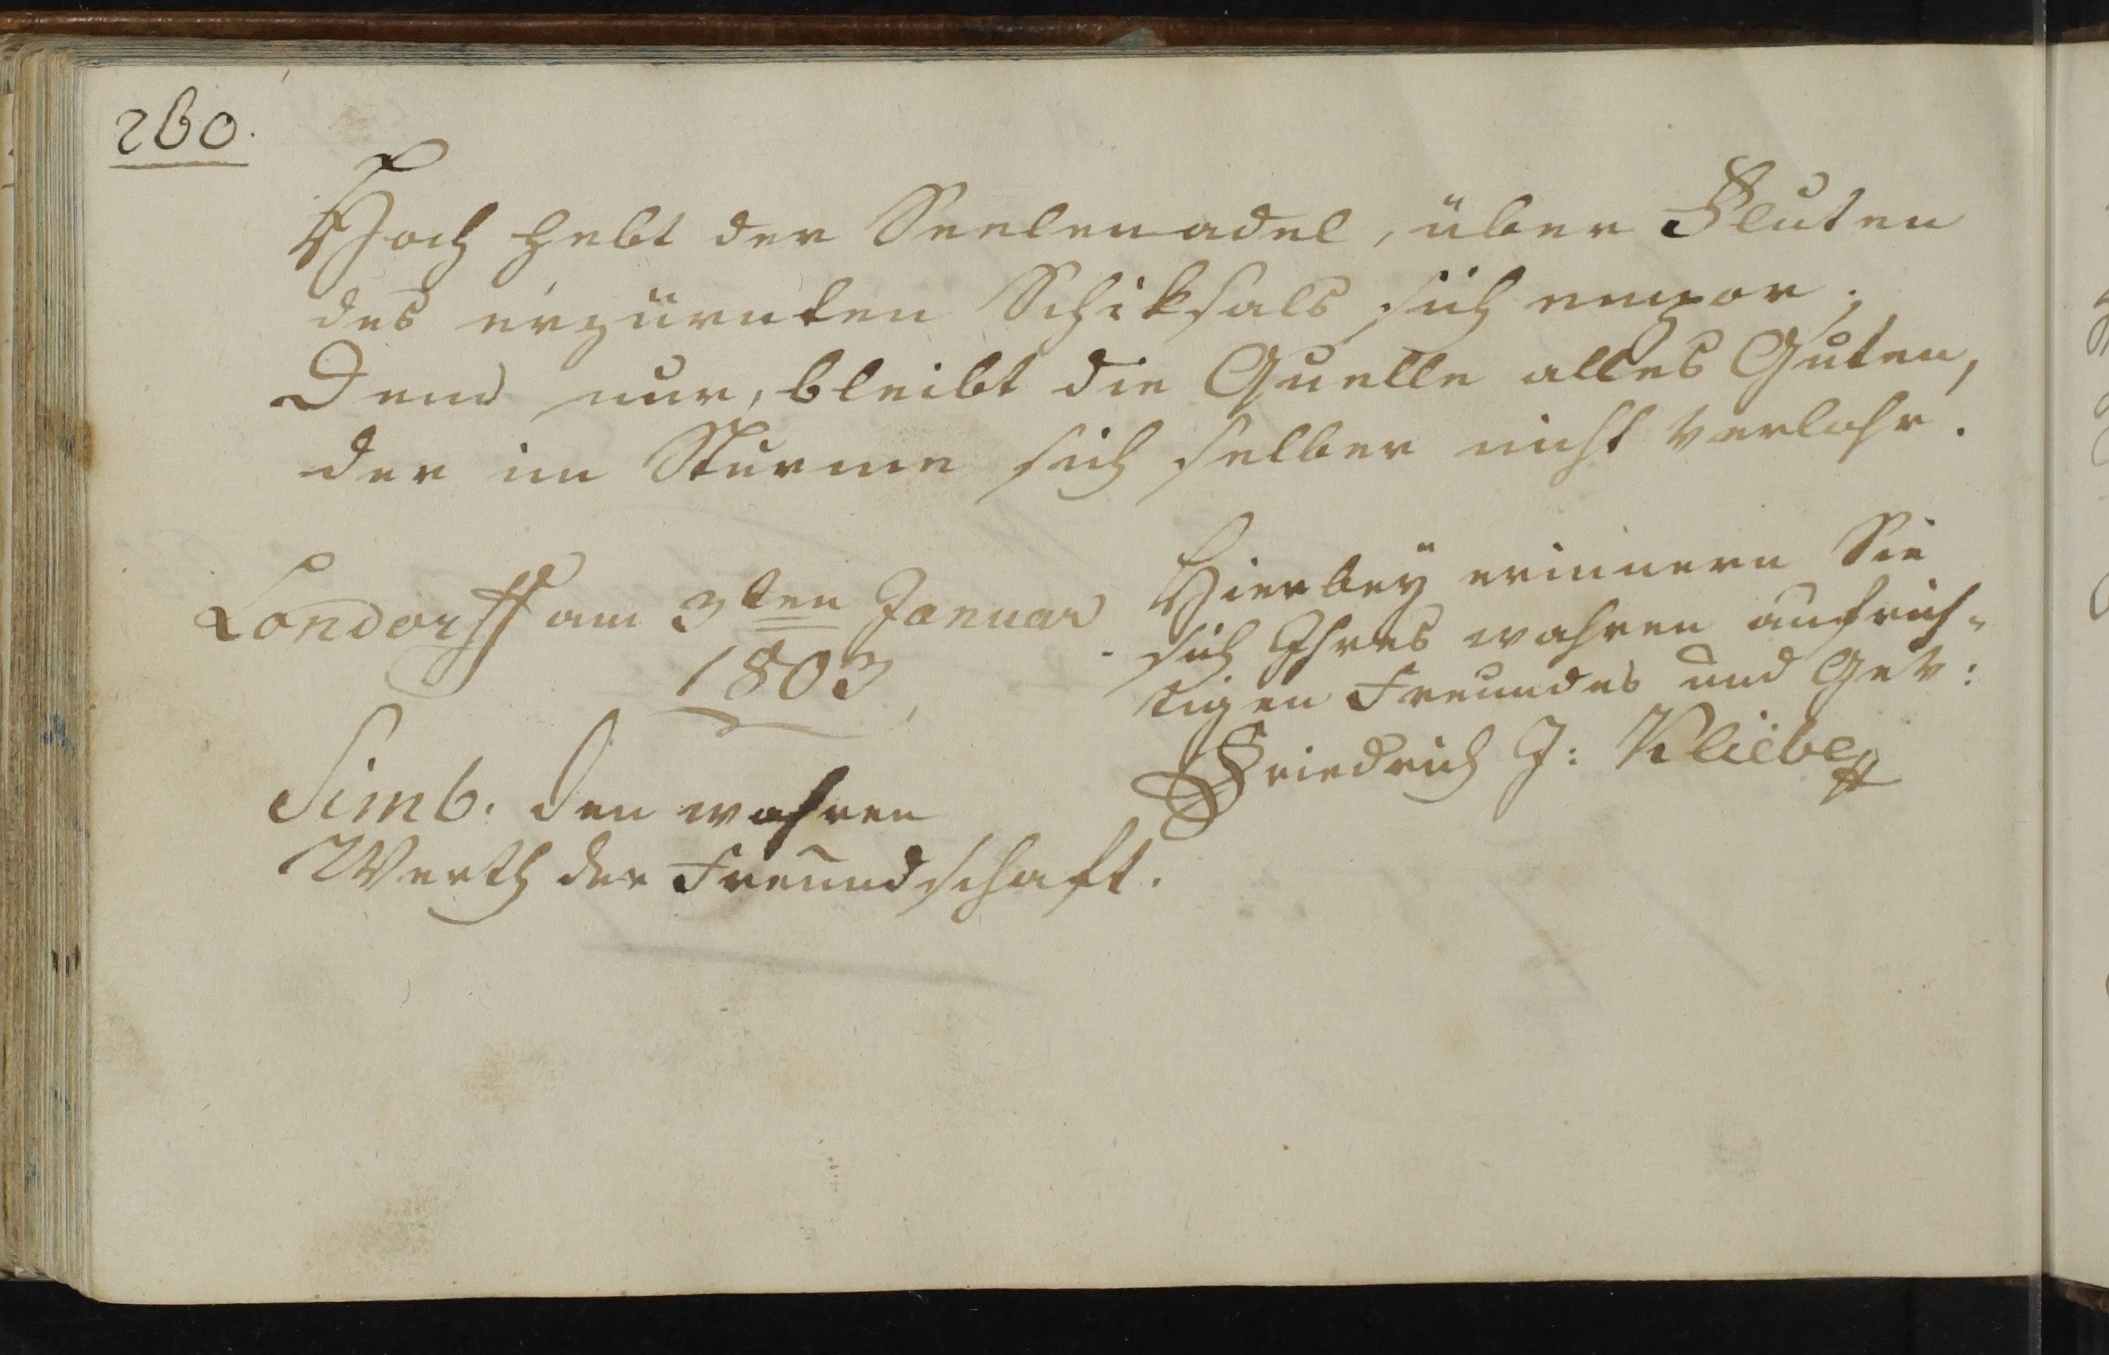 260.
Hoch hebt der Seelenadel, über Fluten
des erzürnten Schiksals sich empor;
Dem nur, bleibt die Quelle alles Guten,
der im Sturme sich selber nicht verlohr.
Londorff am 3ten Januar
1803,
Simb. Den wahren
Werth der Freundschaft.
Hierbeÿ erinnern Sie
sich Ihres wahren aufrich-
tigen Freundes und Gev:
Friedrich J: